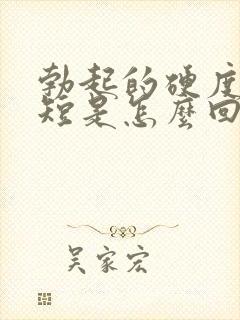 勃起的硬度
短是怎麼回
吴家宏